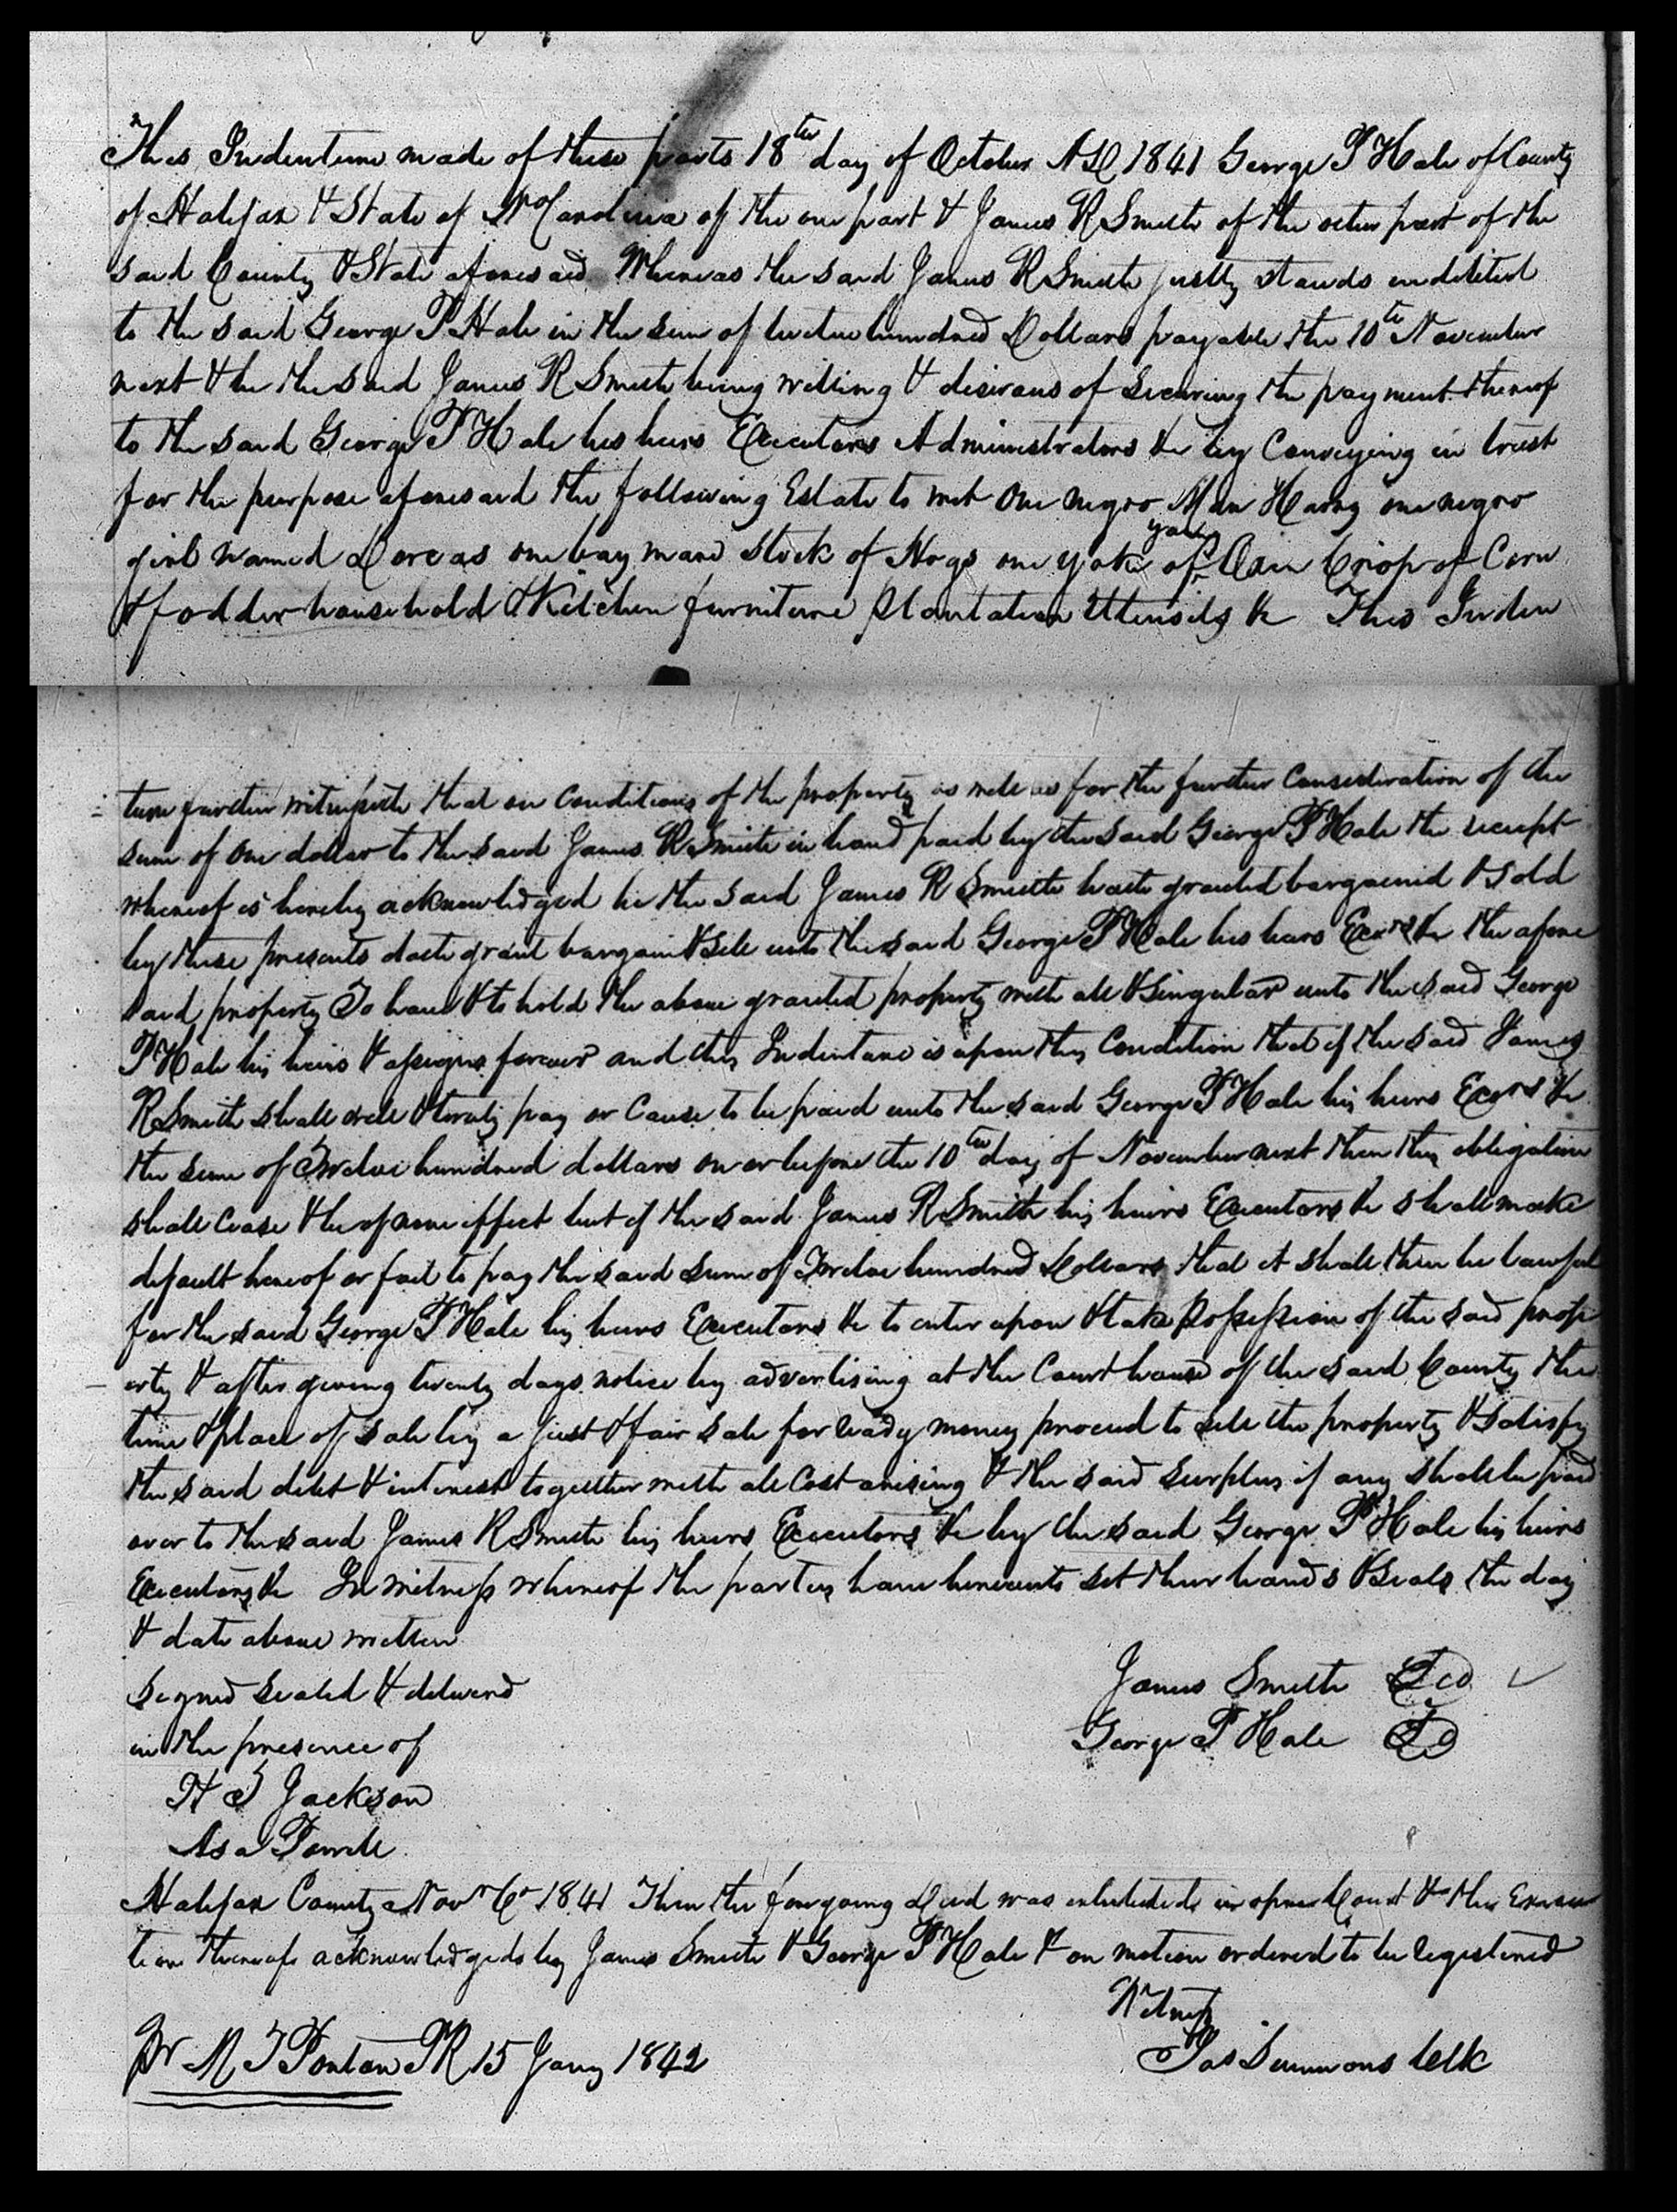 This Indenture made of these parts 18th day of October AD 1841 George P Hale of County
of Halifax & State of No Carolina of the one part & James R Smith of the other part of the
said County & State aforesaid Whereas the said James R Smith justly stands indebted
to the said George P Hale in the sum of twelve hundred Dollars payable the 10th November
next & he the said James R Smith being willing & desirous of securing the payment thereof
to the said George P Hale his heirs Executors Administrators &c by Conveying in trust
for the purpose aforesaid the following Estate to wit One negro Man Harry one negro
girl named Dorcas one bay mare Stock of Hogs one yoke of Oxen Crop of Corn
& fodder household & Kitchen furniture plantation Utensils &c This Inden
ture further witnesseth that on Conditions of the property as well as for the further Consideration of the
sum of one dollar to the said James R Smith in hand paid by the said George P Hale the receipt
whereof is hereby acknowledged he the said James R Smith hath granted bargained & sold
by these presents doth grant bargain & sell unto the said George P Hale his heirs Exors &c the afore
said property To have & to hold the above granted property with all & Singular unto the said George
P Hale his heirs & assigns forever and this Indenture is upon this Condition that if the said James
R Smith shall well & truly pay or Cause to be paid unto the said George P Hale his heirs Exors &c
the sum of Twelve hundred dollars on or before the 10th day of November next then this obligation
shall Cease & be of none effect but if the said James R Smith his heirs Executors &c shall make
default hereof or fail to pay the said Sum of Twelve hundred Dollars that it shall then be lawful
for the said George P Hale his heirs Executors &c to enter upon & take possession of the said prop
erty & after giving twenty days notice by advertising at the Court house of the said County the
time & place of sale by a just & fair sale for ready money proceed to sell the property & satisfy
the said debt & interest together with all Cost arising & the said surplus if any shall be paid
over to the said James R Smith his heirs Executors &c by the said George P Hale his heirs
Executors &c In witness whereof the parties have hereunto set their hands & seals the day
& date above written
Signed sealed & delivered
James Smith
in the presence of
George P Hale
H T Jackson
Asa
Halifax County Nov 1841 Then the foregoing Deed was exhibited in open Court & the Execu
tion thereof acknowledged by James Smith & George P Hale & on motion ordered to be registered
Witness
Pr M T Ponton PR 15 Jany 1842
Jas Simmons Clk